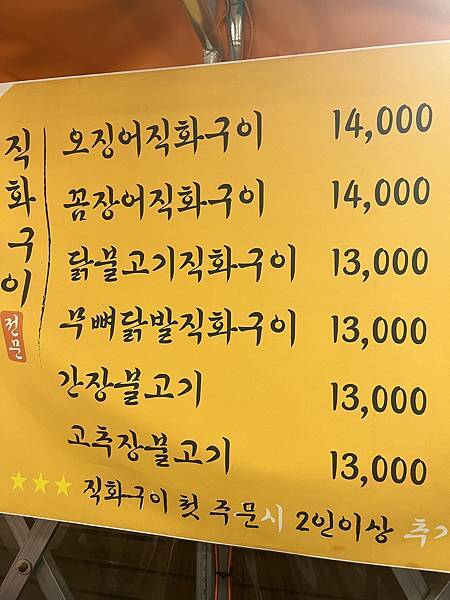 직화구이
전문
오징어직화구이 14,000
꼼장어직화구이 14,000
닭불고기직화구이 13,000
무뼈닭발직화구이 13,000
간장불고기 13,000
고추장불고기 13,000
★★★ 직화구이 첫 주문시 2인이상